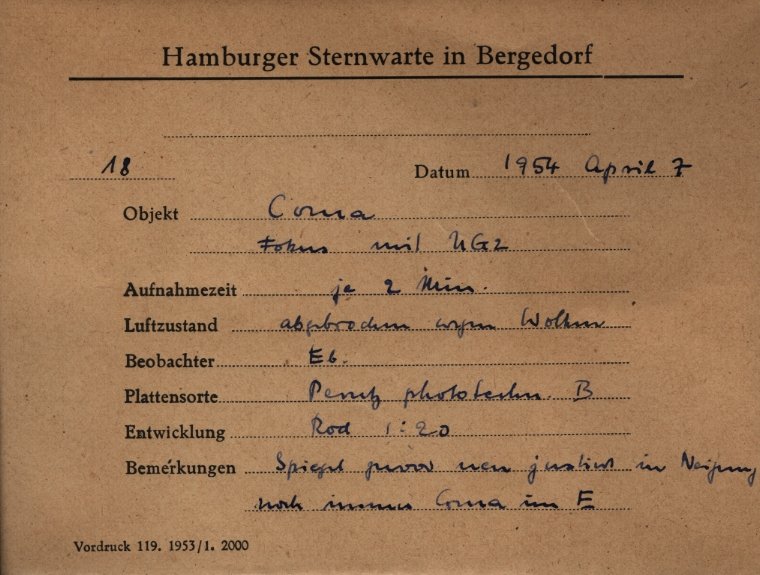 Hamburger Sternwarte in Bergedorf
18 Datum 1954 April 7
Objekt Coma
Fokus mit UG2
Aufnahmezeit je 2 Min.
Luftzustand abgebrochen wegen Wolken
Beobachter Eb.
Plattensorte Perutz phototechn. B
Entwicklung Rod 1:20
Bemerkungen Spiegel zuvor neu justiert in Neigung
noch immer Coma im E
Vordruck 119. 1953/1. 2000